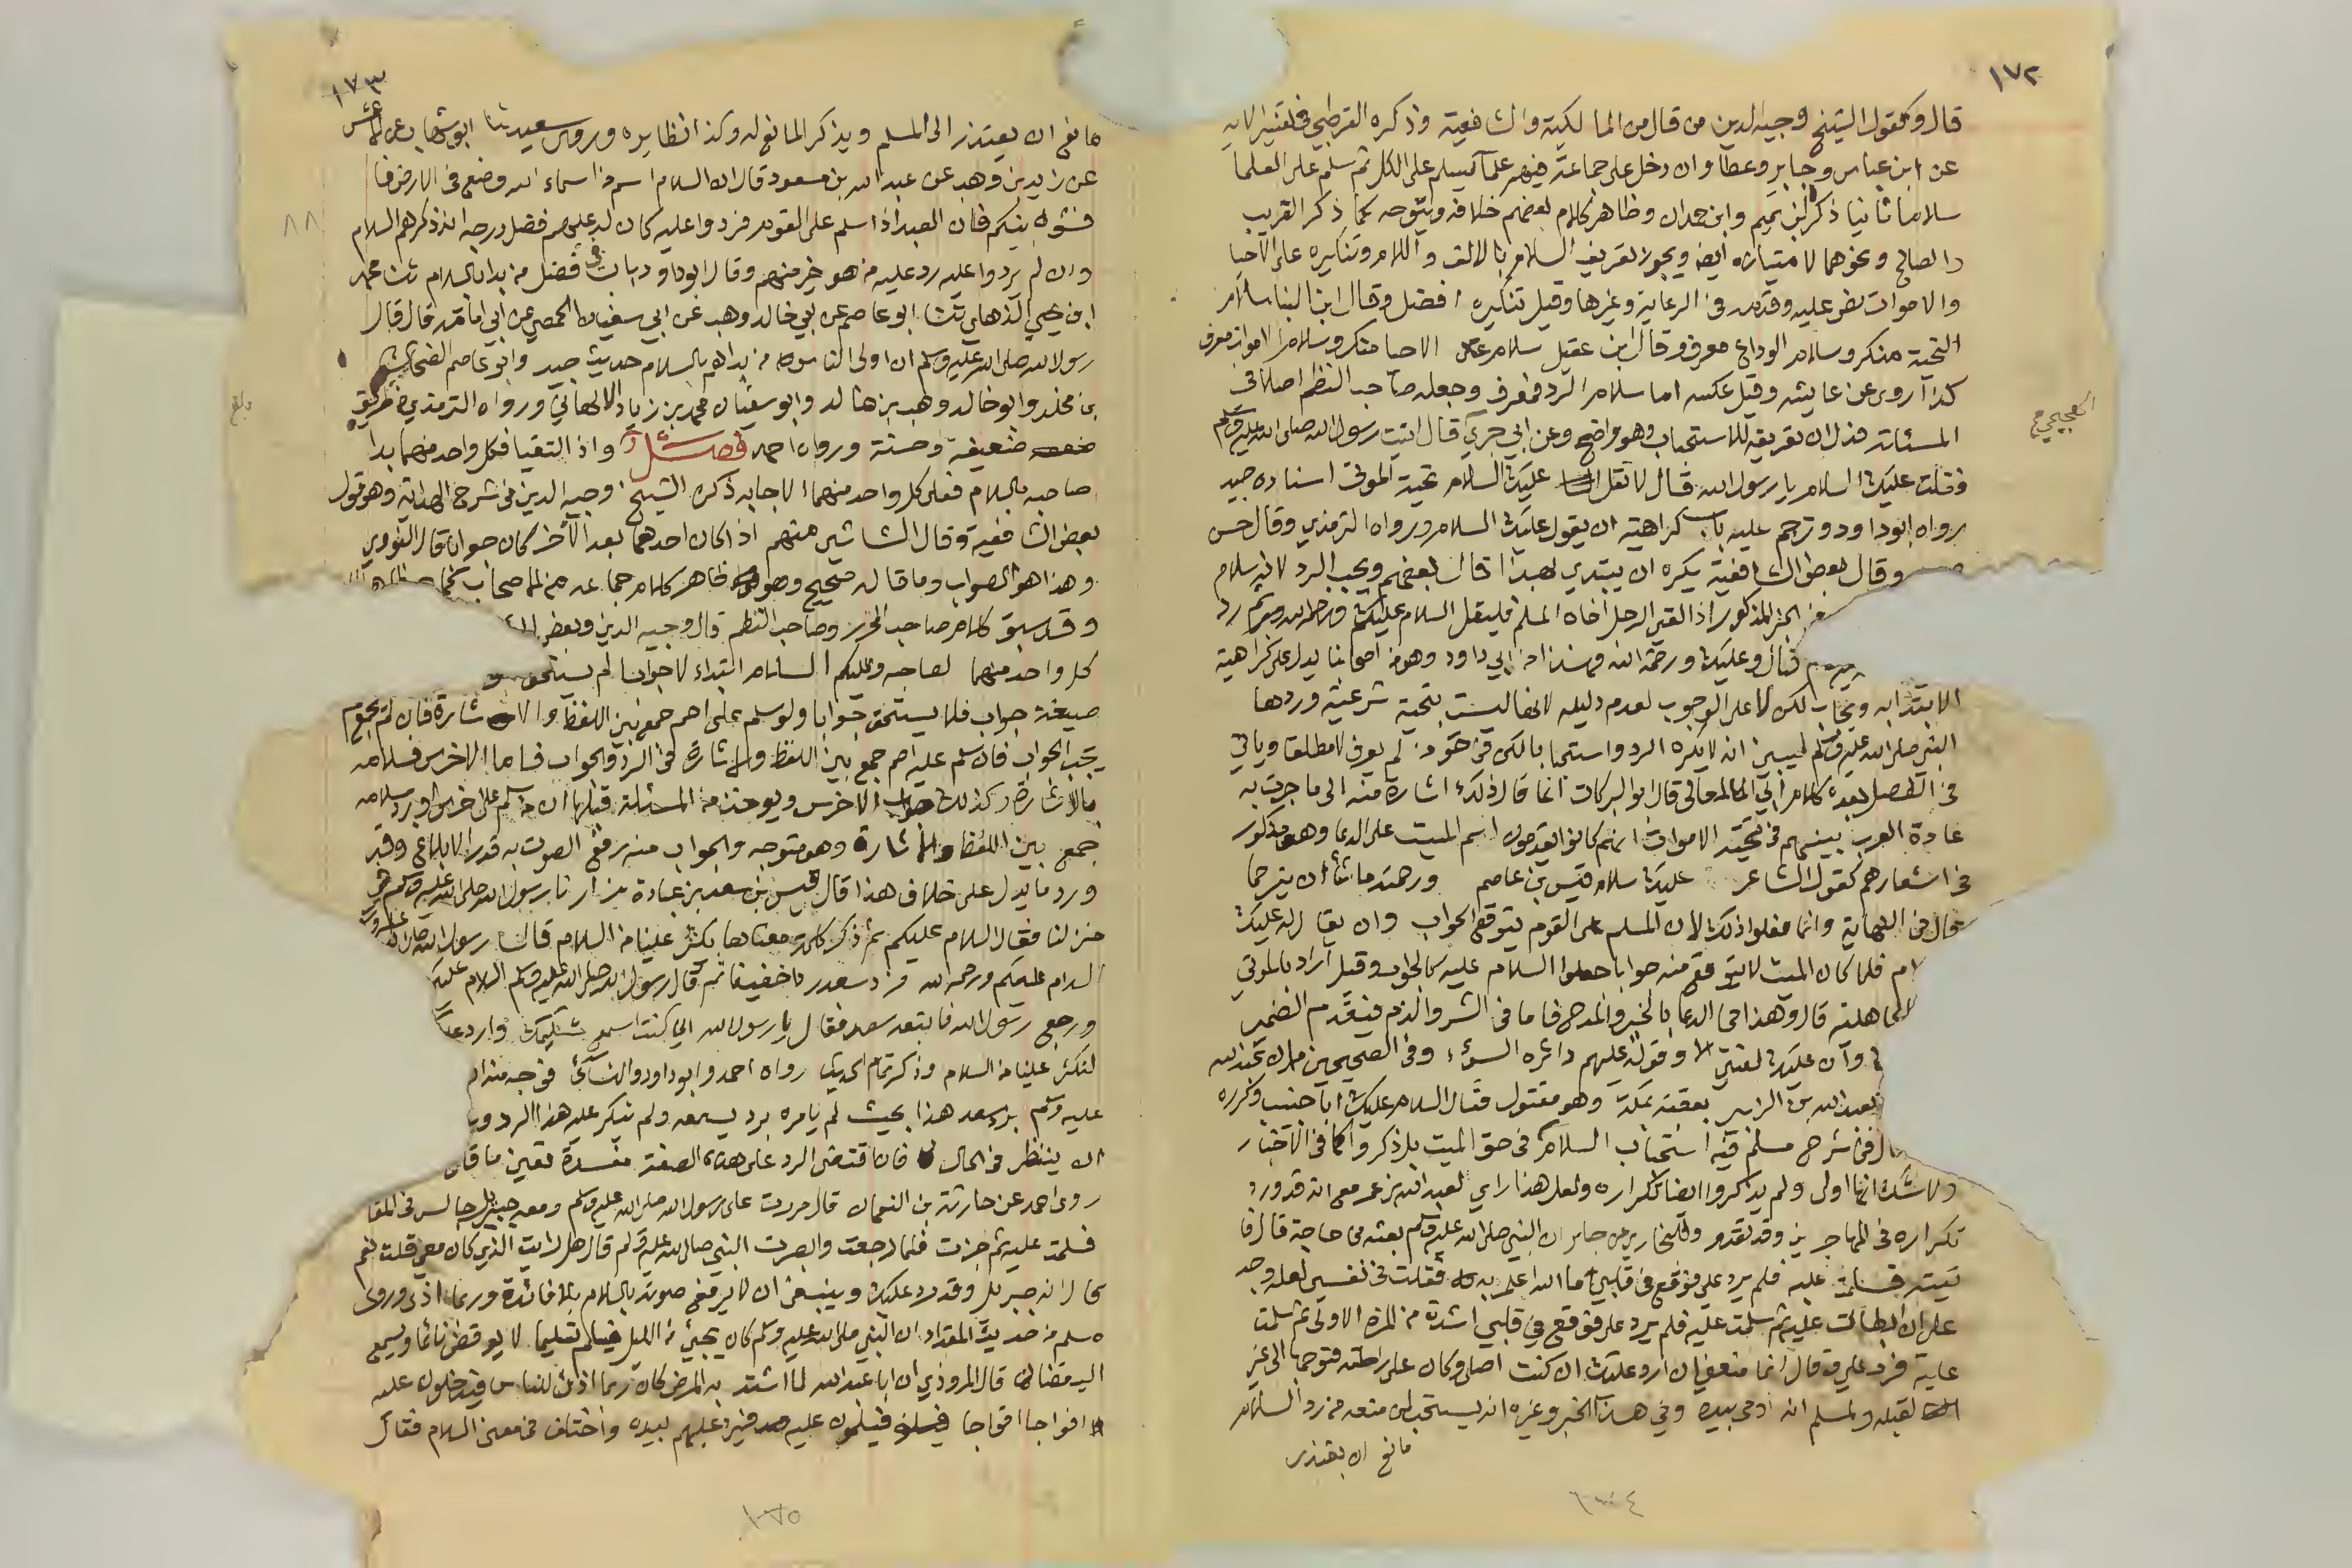 ١٧٢
قال وكقول الشيخ وجيه الدين من قال من المالكية والشافعية وذكره القرطبي في تفسير الاية
عن ابن عباس وجابر وعطا وان دخل على جماعة فيهم علما يسلم على الكل ثم سلم على العلما
سلاما ثانيا ذكره ابن تميم وابن حمدان وظاهر كلام بعضهم خلافه ويتوجه كما ذكر القريب
والصالح ونحوهما لامتيازه ايضا ويجوز تعريف السلام بالالف واللام وتنكيره على الاحيا
والاموات نص عليه وقدم في الرعاية وغيرها وقيل تنكيره افضل وقال ابن البنا سلام
التحية منكر وسلام الوداع معرف وقال ابن عقيل سلام الاحيا منكر وسلام الاموات معرف
كذا روى عن عايشه وقيل عكسه اما سلام الرد فمعرف وجعله صاحب النظم اصلا في
المسئلة فدل ان تعريفه للاستحباب وهو واضح وعن ابي جري قال اتيت رسول الله صلى الله عليه وسلم
الهجيمي
فقلت عليك السلام يا رسول الله قال لا تقل عليك السلام تحية الموتى اسناده جيد
رواه ابو داود وترجم عليه باب كراهية ان يقول عليك السلام ورواه الترمذي وقال حسن
وقال بعض الشافعية يكره ان يبتدي بهذا قال بعضهم ويجب الرد لانه سلام
الخبر المذكور اذا لقي الرجل اخاه المسلم فليقل السلام عليك ورحمة الله ثم رد
قال وعليك ورحمة الله وهذا من ابي داود وهو من اصحابنا يدل على كراهية
الابتدا به ويجاب لكن لا على الوجوب لعدم دليله لانها ليست بتحية شرعية وردها
النبي صلى الله عليه وسلم ليبين انه لا يكره الرد واستحبابا لكن في حق من لم يعرف لا مطلقا وياتي
في الفصل بعده كلام ابي المعالي قال ابو البركات انما قال ذلك اشارة منه الى ما جرت به
عادة العرب بينهم في تحية الاموات انهم كانوا يقدمون اسم الميت على الدعا وهو مذكور
في اشعارهم كقول الشاعر عليك سلام قيس بن عاصم ورحمته ما شا ان يترحما
قال في النهاية وانما فعلوا ذلك لان المسلم على القوم يتوقع الجواب وان يقال له عليك
لام فلما كان الميت لا يتوقع منه جوابا جعلوا السلام عليه كالجواب وقيل اراد بالموتى
الجاهلية قال وهذا في الدعا بالخير والمدح فاما في الشر والذم فيتقدم الضمير
وان عليك لعنتي الا وقوله عليهم دائره السوء وفي الصحيحين ان عبد الله
بعبد الله بن الزبير بعقبة مكة وهو مقتول فقال السلام عليك ابا خبيب وكرره
ال في شرح مسلم فيه استحباب السلام في حق الميت بل ذكروا كما في الاخبار
ولا شك انها اولى ولم يذكروا ايضا تكراره ولعل هذا راي لعبد الله بن عمر مع انه قد ورد
تكراره في المهاجرين وقد تقدم وللبخاري عن جابر ان النبي صلى الله عليه وسلم بعثه في حاجة قال فا
تيته فسلمت عليه فلم يرد علي فوقع في قلبي ما الله اعلم به فقلت في نفسي لعله وجد
علي ان ابطات عليه ثم سلمت عليه فلم يرد علي فوقع في قلبي اشد من المرة الاولى ثم سلمت
عليه فرد علي وقال انما منعني ان ارد عليك ان كنت اصلي وكان على راحلته متوجها الى غير
لقبله ولمسلم انه اومى بيده وفي هذا الخبر وغيره انه يستحب لمن منعه من رد السلام
مانع ان يعتذر
١٧٣
مانع ان يعتذر الى المسلم ويذكر المانع له وكذا نظايره وروى سعيد ثنا ابو شهاب عن الاعمش
عن زيد بن وهب عن عبد الله بن مسعود قال ان السلام اسم من اسماء الله وضع في الارض فا
فشوه بينكم فان العبد اذا سلم على القوم فردوا عليه كان له عليهم فضل درجة انه ذكرهم السلام
٨٨
وان لم يردوا عليه رد عليه من هو خير منهم وقال ابو داود باب في فضل من بدا بالسلام ثنا محمد
ابن يحيى الذهلي ثنا ابو عاصم عن ابي خالد وهب عن ابي سفيان الحمصي عن ابي امامة قال قال
رسول الله صلى الله عليه وسلم ان اولى الناس من بداهم بالسلام حديث جيد وابو عاصم الضحاك
بن مخلد وابو خالد وهب بن خالد وابو سفيان محمد بن زياد الالهاني ورواه الترمذي من طريق
بلغ
ضعيفة وحسنة ورواه احمد فصل واذا التقيا فكل واحد منهما بدا
صاحبه بالسلام فعلى كل واحد منهما الاجابه ذكره الشيخ وجيه الدين في شرح الهداية وهو قول
بعض الشافعية وقال الشاشي منهم اذا كان احدهما بعد الاخر كان جوابا قال النووي
وهذا هو الصواب وما قاله صحيح وهو ظاهر كلام جماعه من الاصحاب كما
وقد سبق كلام صاحب المحرر وصاحب النظم قال وجيه الدين وبعض
كل واحد منهما لصاحبه وعليكم السلام ابتداء لا جوابا لم يستحق
صيغة جواب فلا يستحق جوابا ولو سلم على اصم جمع بين اللفظ والاشارة فان لم يجمع لم
يجب الجواب فان سلم عليه اصم جمع بين اللفظ والاشارة في الرد والجواب فاما الاخرس فسلامه
بالاشارة وكذلك جواب الاخرس ويوخذ من المسئلة قبلها ان من سلم على اخرس او رد سلامه
جمع بين اللفظ والاشارة وهو متوجه والجواب منه برفع الصوت به قدر الابلاغ وقد
ورد ما يدل على خلاف هذا قال قيس بن سعد بن عبادة زارنا رسول الله صلى الله عليه وسلم في
منزلنا فقال السلام عليكم ثم ذكر كلمة معناها يكثر علينا من السلام قال رسول الله صلى الله عليه وسلم
السلام عليكم ورحمه الله فرد سعد ردا خفيفا ثم قال رسول الله صلى الله عليه وسلم السلام عليكم
ورجع رسول الله فاتبعه سعد فقال يا رسول الله اني كنت اسمع تسليمك وارد عليك
لتكثر علينا من السلام وذكر تمام الحديث رواه احمد وابو داود والنسائي
عليه وسلم برد سعد هذا بحيث لم يامره برد يسمعه ولم ينكر عليه هذا الرد
ان ينتظر في الحال فان اقتضى الرد على هذه الصفة مفسدة تعين ما قال
روى احمد عن حارثة بن النعمان قال مررت على رسول الله صلى الله عليه وسلم ومعه جبريل جالس في المقا
فسلمت عليه ثم جزت فلما رجعت وانصرف النبي صلى الله عليه وسلم قال هل رايت الذي كان معي قلت نعم
قال انه جبريل وقد رد عليك وينبغي ان لا يرفع صوته بالسلام بلا فائدة وربما اذى وروى
مسلم من حديث المقداد ان النبي صلى الله عليه وسلم كان يجيء من الليل فيسلم تسليما لا يوقظ نائما ويسمع
اليقضان قال المروذي ان ابا عبد الله لما اشتد به المرض كان ربما اذن للناس فيدخلون عليه
افواجا افواجا فيسلمون عليه فيرد عليهم بيده واختلف في معنى السلام فقال